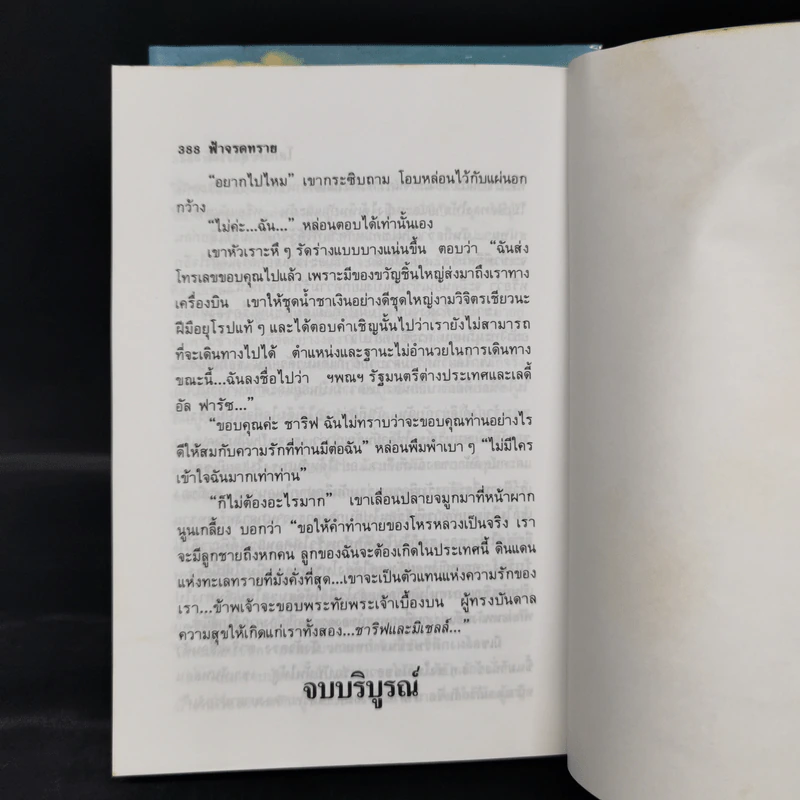 388 ฟ้าจรดทราย
“อยากไปไหม” เขากระซิบถาม โอบหล่อนไว้กับแผ่นอก
กว้าง
“ไม่ค่ะ...ฉัน...” หล่อนตอบได้เท่านั้นเอง
เขาหัวเราะหึ ๆ รัดร่างแบบบางแน่นขึ้น ตอบว่า “ฉันส่ง
โทรเลขขอบคุณไปแล้ว เพราะมีของขวัญชิ้นใหญ่ส่งมาถึงเราทาง
เครื่องบิน เขาให้ชุดน้ำชาเงินอย่างดีชุดใหญ่งามวิจิตรเชียวนะ
ฝีมือยุโรปแท้ ๆ และได้ตอบคำเชิญนั้นไปว่าเรายังไม่สามารถ
ที่จะเดินทางไปได้ ตำแหน่งและฐานะไม่อำนวยในการเดินทาง
ขณะนี้...ฉันลงชื่อไปว่า ฯพณฯ รัฐมนตรีต่างประเทศและเลดี้
อัล ฟารัซ...”
“ขอบคุณค่ะ ชาริฟ ฉันไม่ทราบว่าจะขอบคุณท่านอย่างไร
ดีให้สมกับความรักที่ท่านมีต่อฉัน” หล่อนพึมพำเบา ๆ “ไม่มีใคร
เข้าใจฉันมากเท่าท่าน”
“ก็ไม่ต้องอะไรมาก” เขาเลื่อนปลายจมูกมาที่หน้าผาก
นูนเกลี้ยง บอกว่า “ขอให้คำทำนายของโหรหลวงเป็นจริง เรา
จะมีลูกชายถึงหกคน ลูกของฉันจะต้องเกิดในประเทศนี้ ดินแดน
แห่งทะเลทรายที่มั่งคั่งที่สุด...เขาจะเป็นตัวแทนแห่งความรักของ
เรา...ข้าพเจ้าจะขอบพระทัยพระเจ้าเบื้องบน ผู้ทรงบันดาล
ความสุขให้เกิดแก่เราทั้งสอง...ชาริฟและมิเชลล์...”
จบบริบูรณ์